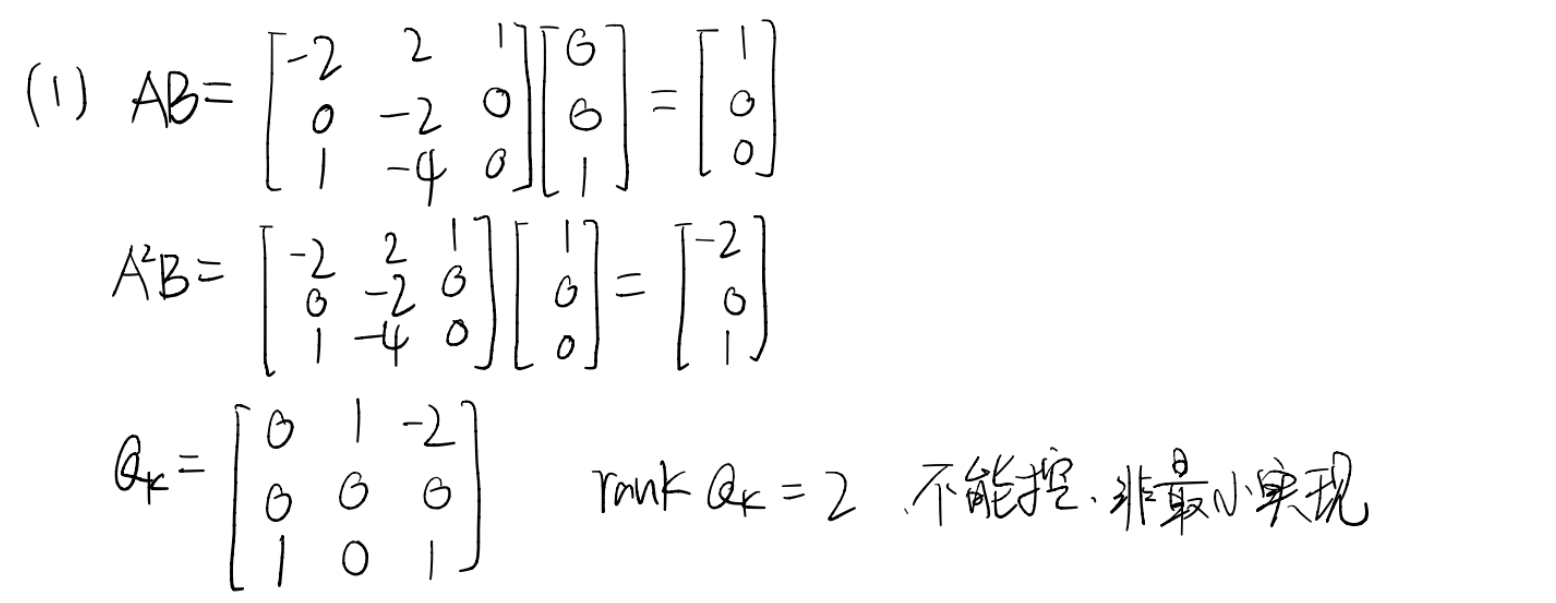 (1) AB= [-2 2 1; 0 -2 0; 1 -4 0] [0; 0; 1] = [1; 0; 0]
A²B= [-2 2 1; 0 -2 0; 1 -4 0] [1; 0; 0] = [-2; 0; 1]
Qk= [0 1 -2; 0 0 0; 1 0 1] rank Qk = 2 .不能控.非最小实现